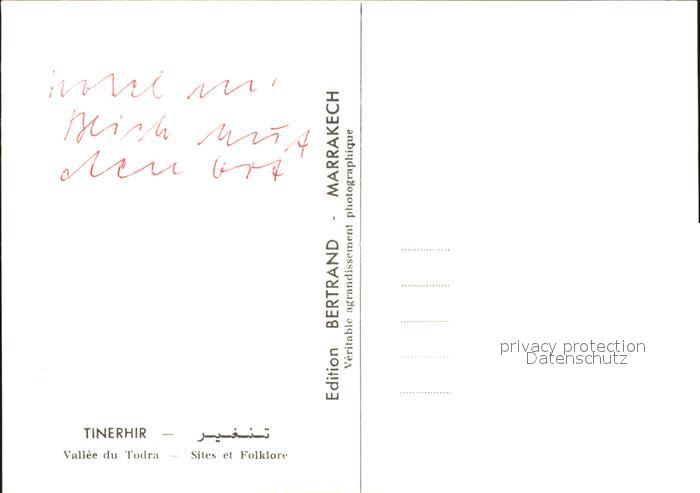 Hotel m.
Blick auf
den Ort
Edition BERTRAND - MARRAKECH
Véritable agrandissement photographique
privacy protection
Datenschutz
TINERHIR — تنغير
Vallée du Todra — Sites et Folklore